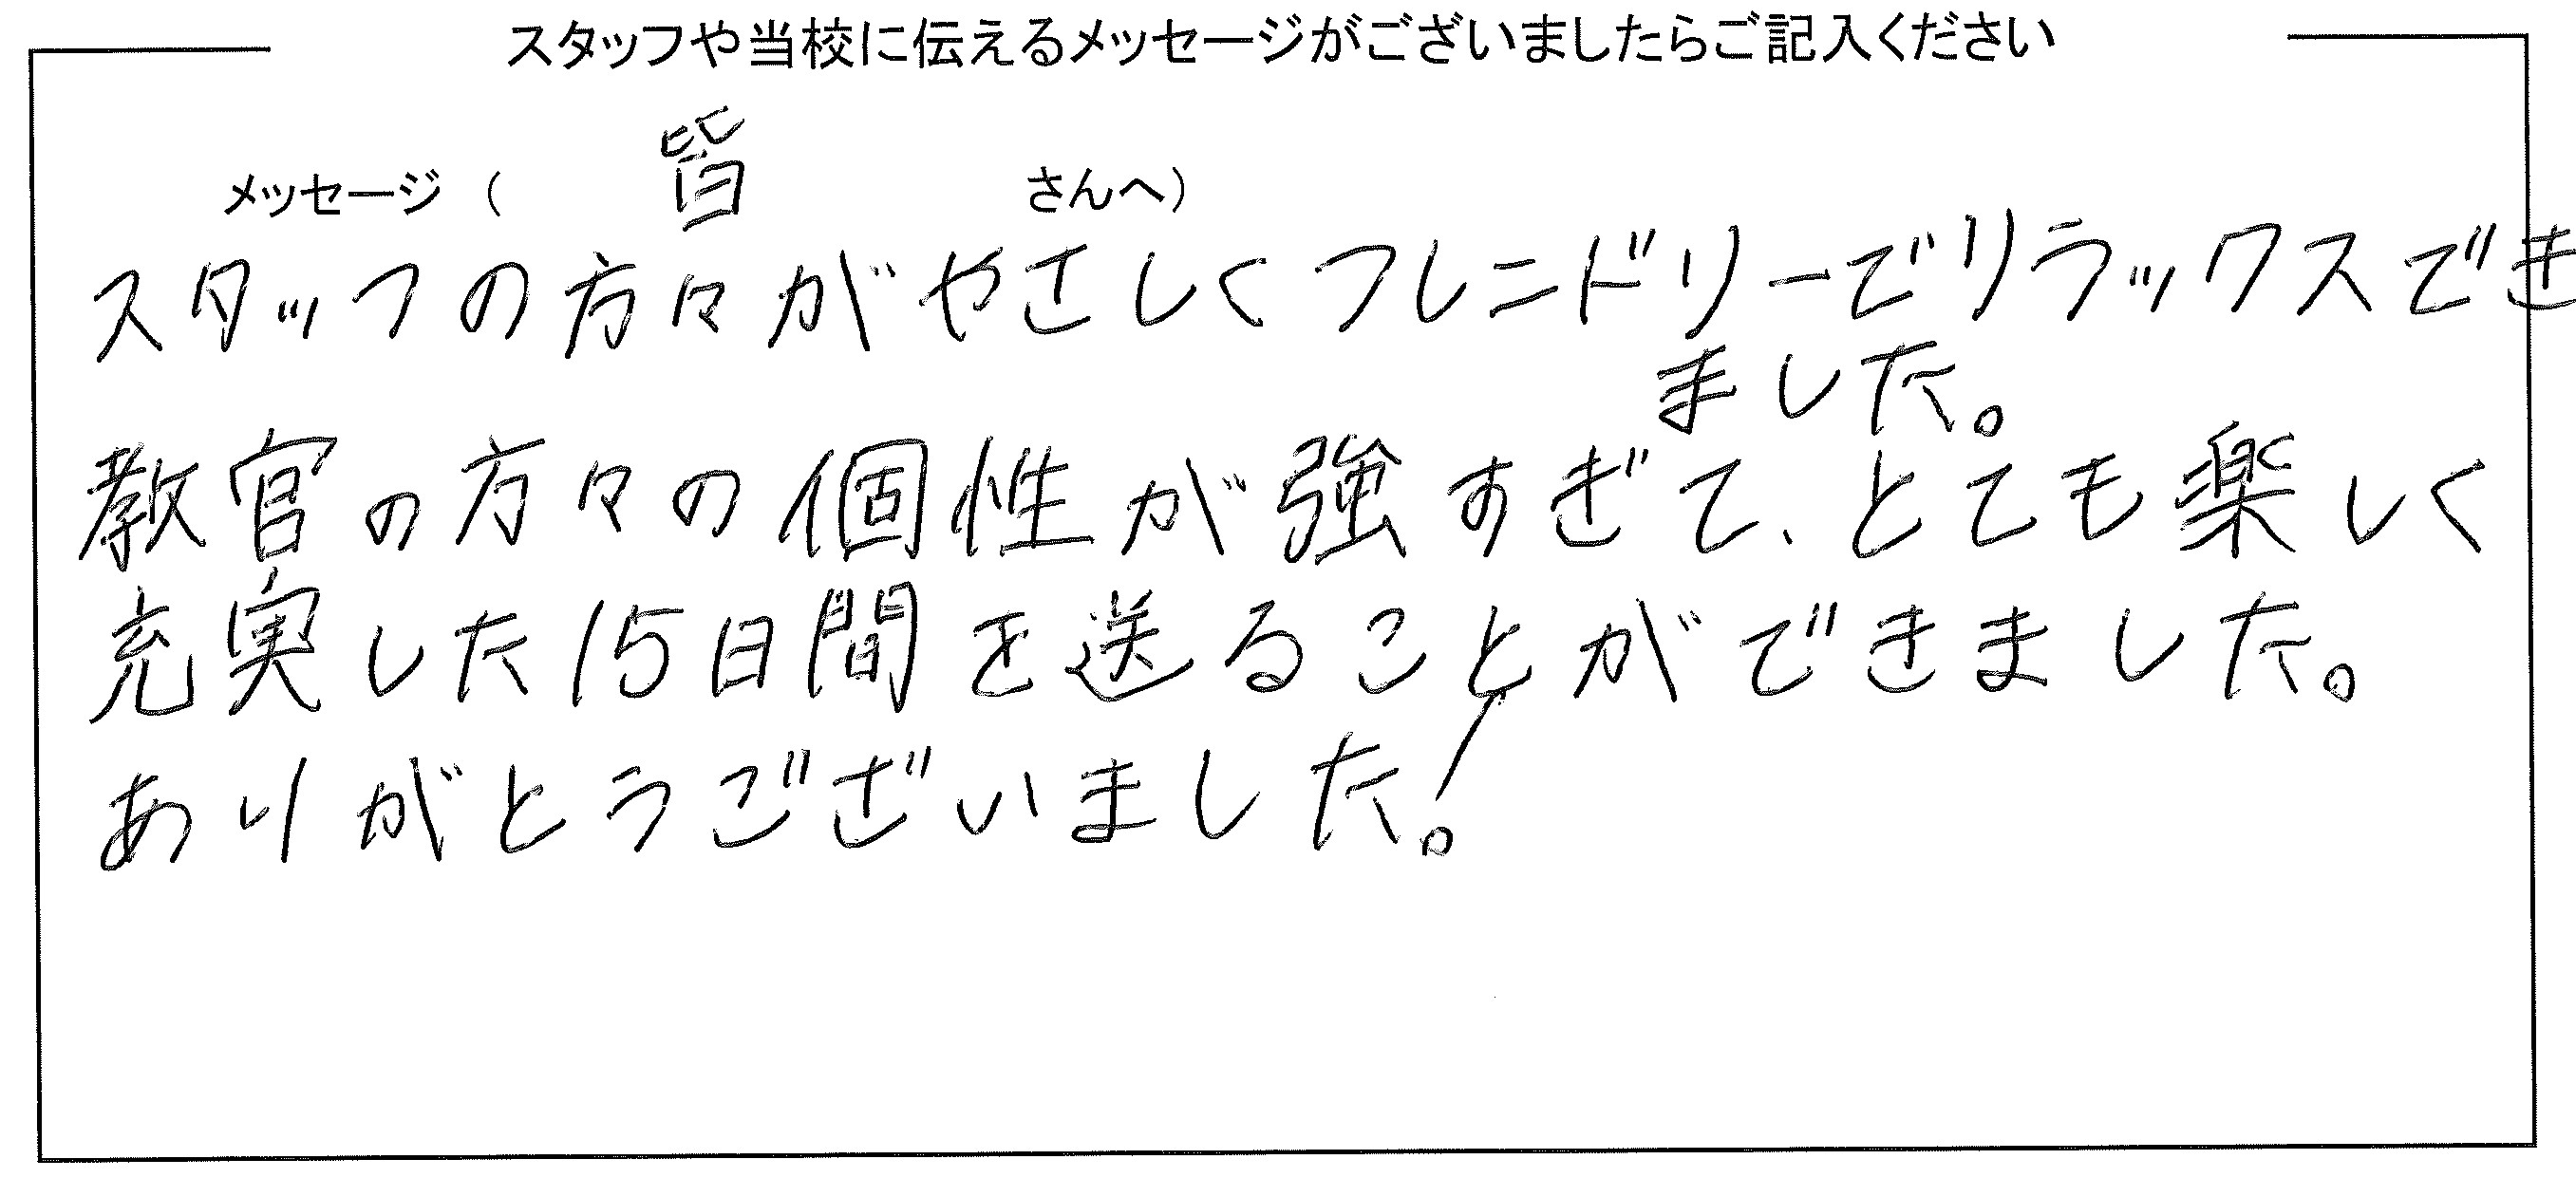 スタッフや当校に伝えるメッセージがございましたらご記入ください
メッセージ（ 皆 さんへ）
スタッフの方々がやさしくフレンドリーでリラックスでき
ました。
教官の方々の個性が強すぎて、とても楽しく
充実した15日間を送ることができました。
ありがとうございました！